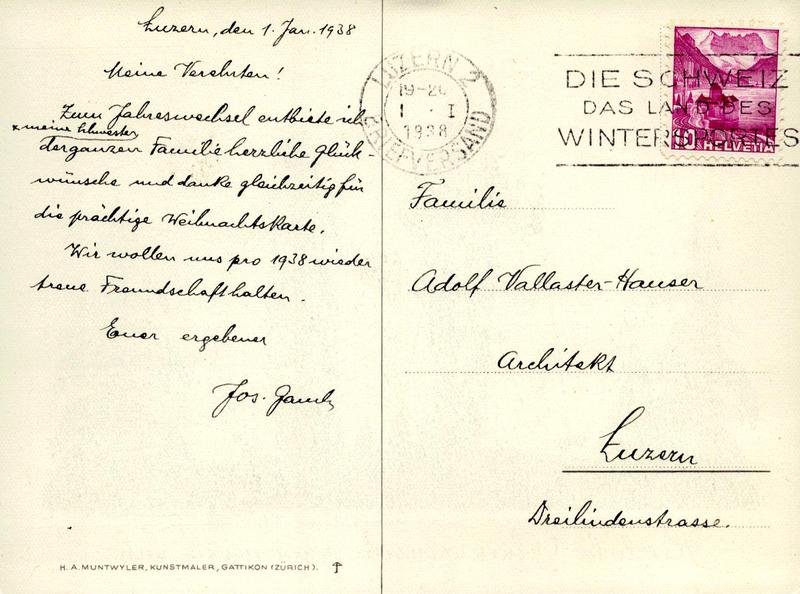 Luzern, den 1. Jan. 1938
Meine Verehrten!
Zum Jahreswechsel entbiete ich
x meine Schwester
der ganzen Familie herzliche Glück-
wünsche und danke gleichzeitig für
die prächtige Weihnachtskarte.
Wir wollen uns pro 1938 wieder
treue Freundschaft halten.
Euer ergebener
Jos.
H. A. MUNTWYLER, KUNSTMALER, GATTIKON (ZÜRICH).
LUZERN 2
19-20
1 · I
1938
BRIEFVERSAND
DIE SCHWEIZ
DAS LAND DES
WINTERSPORTES
10 HELVETIA
Familie
Adolf Vallaster-Hauser
Architekt
Luzern
Dreilindenstrasse.